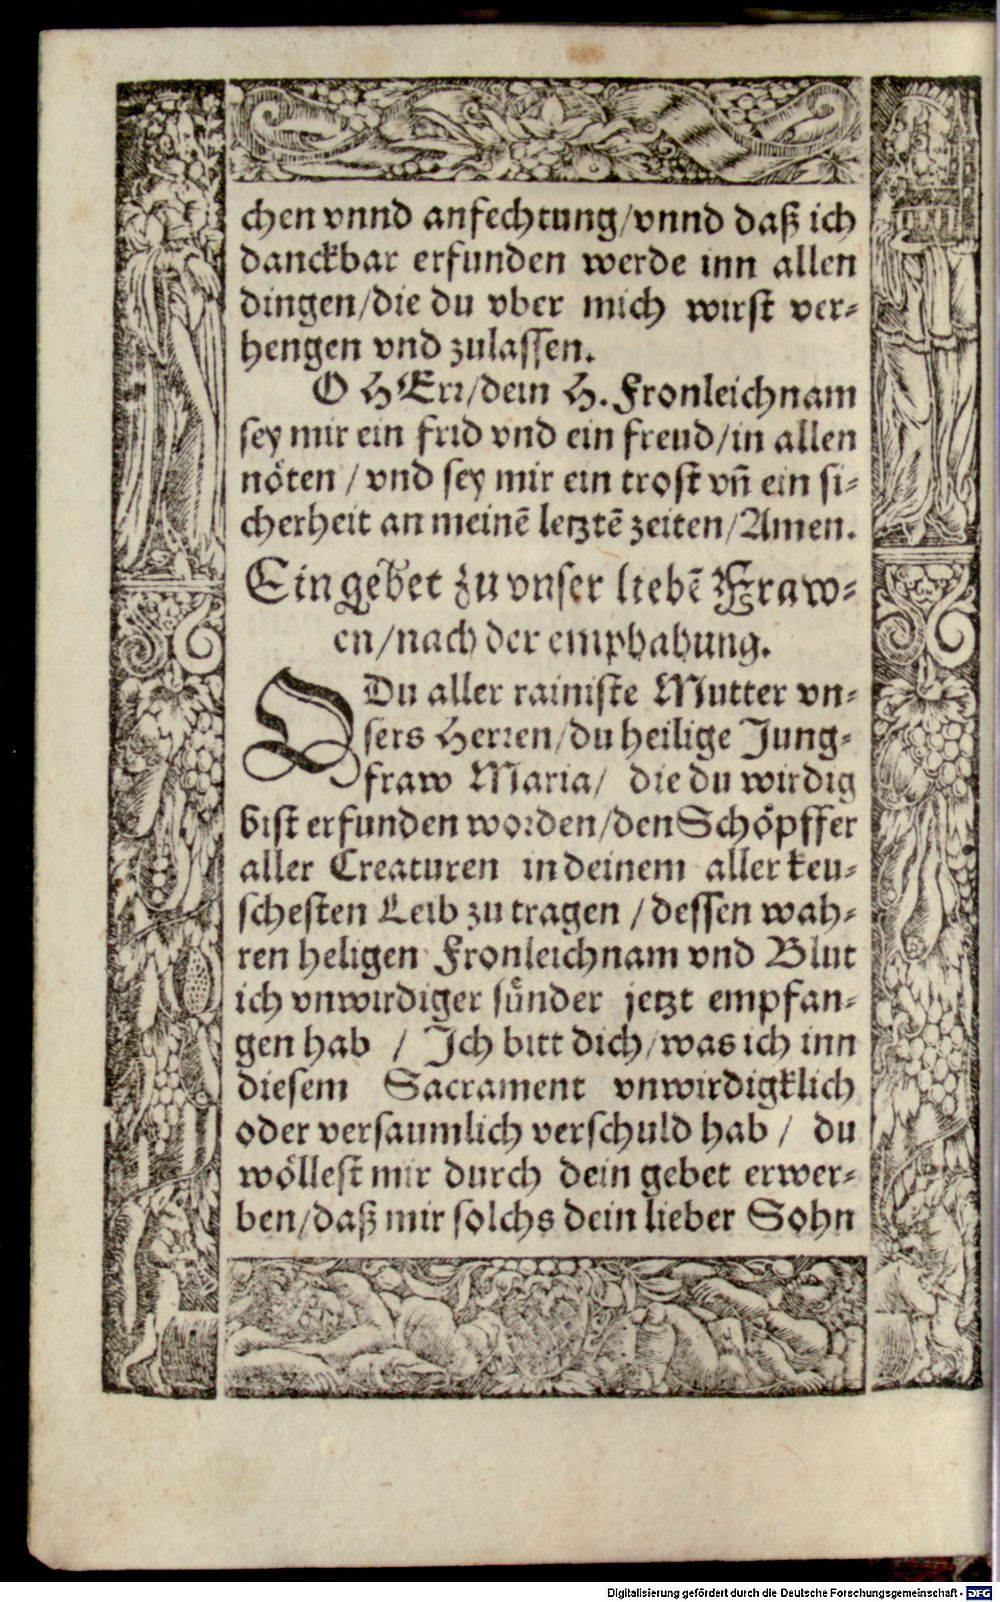 chen vnnd anfechtung/vnnd daß ich
danckbar erfunden werde inn allen
dingen/die du vber mich wirst ver-
hengen vnd zulassen.
O HErr/dein H. Fronleichnam
sey mir ein frid vnd ein freud/in allen
nöten / vnd sey mir ein trost vñ ein si-
cherheit an meinē letztē zeiten/Amen.
Ein gebet zu vnser liebē Fraw-
en/nach der emphahung.
O Du aller rainiste Mutter vn-
sers Herren/du heilige Jung-
fraw Maria/ die du wirdig
bist erfunden worden/den Schöpffer
aller Creaturen in deinem aller keu-
schesten Leib zu tragen / dessen wah-
ren heligen Fronleichnam vnd Blut
ich vnwirdiger sünder jetzt empfan-
gen hab / Ich bitt dich/was ich inn
diesem Sacrament vnwirdigklich
oder versaumlich verschuld hab / du
wöllest mir durch dein gebet erwer-
ben/daß mir solchs dein lieber Sohn
Digitalisierung gefördert durch die Deutsche Forschungsgemeinschaft - DFG